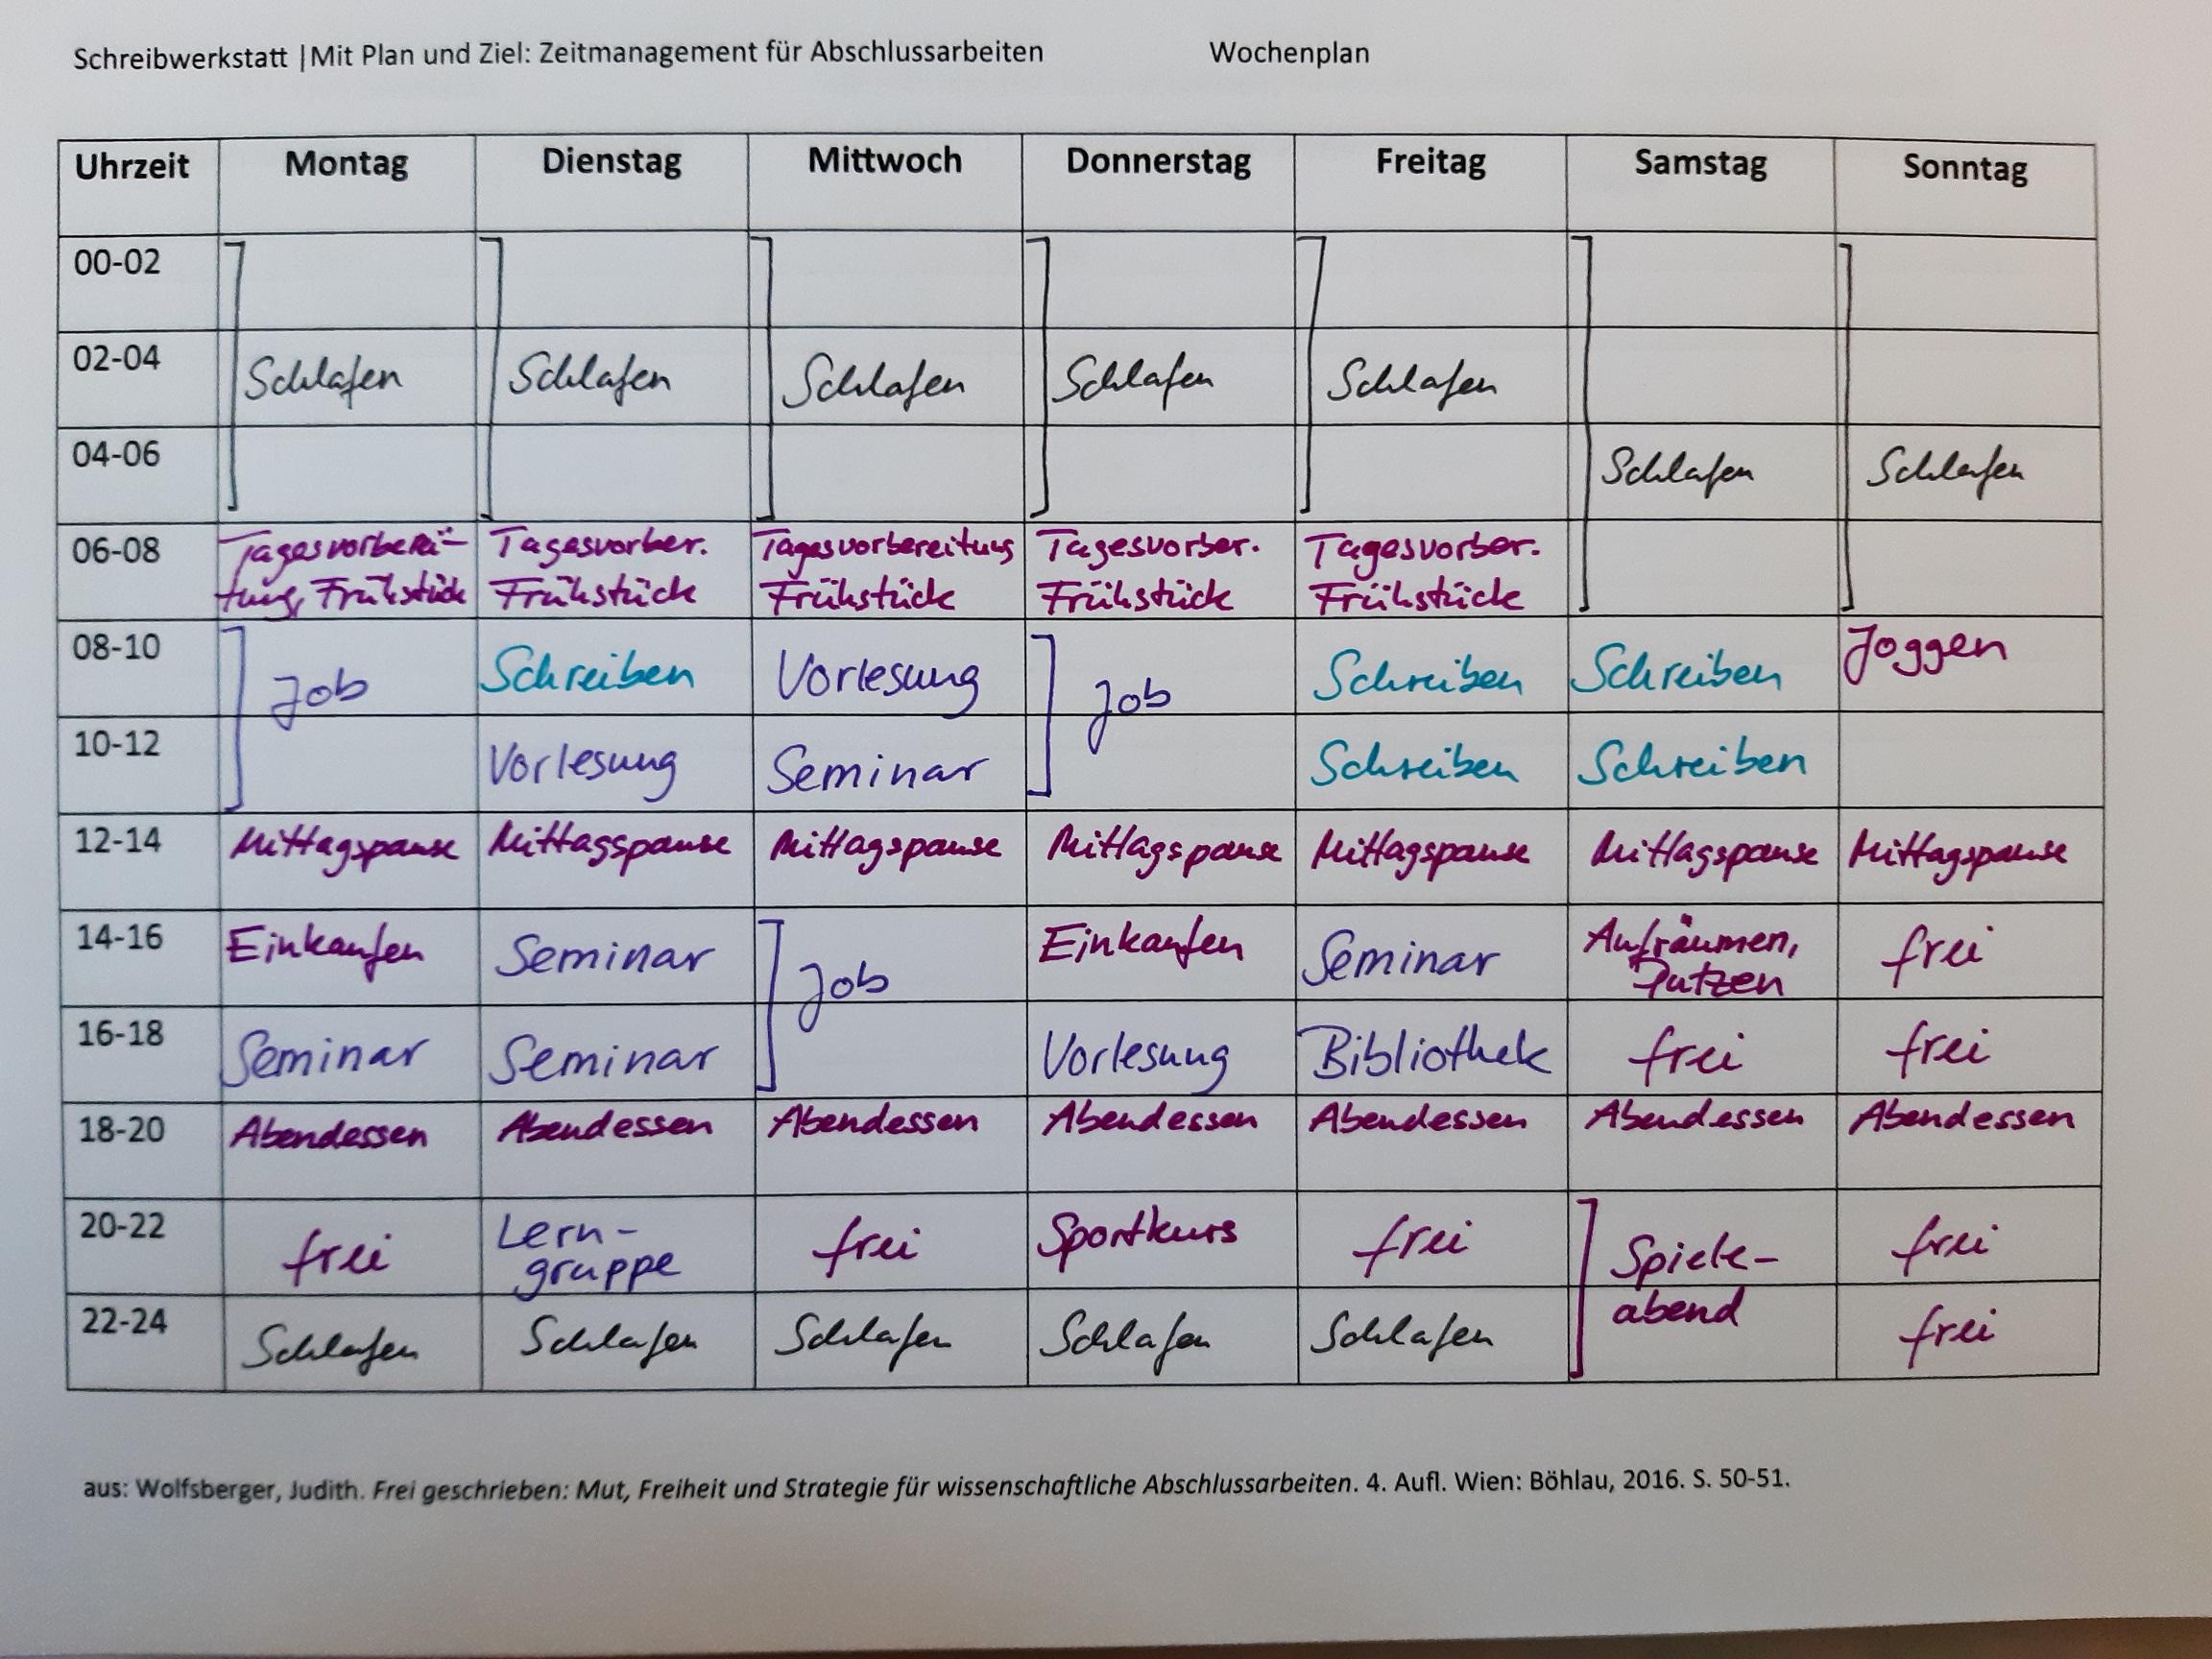 Schreibwerkstatt |Mit Plan und Ziel: Zeitmanagement für Abschlussarbeiten Wochenplan
Uhrzeit Montag Dienstag Mittwoch Donnerstag Freitag Samstag Sonntag
00-02
02-04 Schlafen Schlafen Schlafen Schlafen Schlafen
04-06 Schlafen Schlafen
06-08 Tagesvorberei- Tagesvorber. Tagesvorbereitung Tagesvorber. Tagesvorber.
tung, Frühstück Frühstück Frühstück Frühstück Frühstück
08-10 Job Schreiben Vorlesung Job Schreiben Schreiben Joggen
10-12 Vorlesung Seminar Schreiben Schreiben
12-14 Mittagspause Mittagspause Mittagspause Mittagspause Mittagspause Mittagspause Mittagspause
14-16 Einkaufen Seminar Job Einkaufen Seminar Aufräumen, frei
Putzen
16-18 Seminar Seminar Vorlesung Bibliothek frei frei
18-20 Abendessen Abendessen Abendessen Abendessen Abendessen Abendessen Abendessen
20-22 frei Lern- frei Sportkurs frei Spiele- frei
gruppe
22-24 Schlafen Schlafen Schlafen Schlafen Schlafen abend frei
aus: Wolfsberger, Judith. Frei geschrieben: Mut, Freiheit und Strategie für wissenschaftliche Abschlussarbeiten. 4. Aufl. Wien: Böhlau, 2016. S. 50-51.